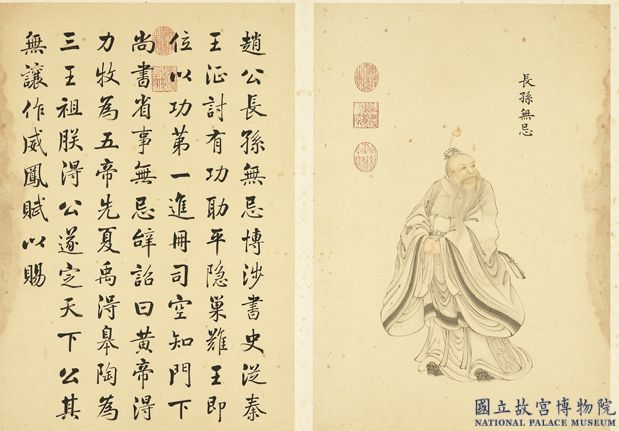 長孫無忌
趙公長孫無忌博涉書史從秦
王征討有功助平隐巢難王即
位以功第一進冊司空知門下
尚書省事無忌辤詔曰黄帝得
力牧為五帝先夏禹得皋陶為
三王祖朕得公遂定天下公其
無讓作威鳳賦以賜
國立故宮博物院
NATIONAL PALACE MUSEUM